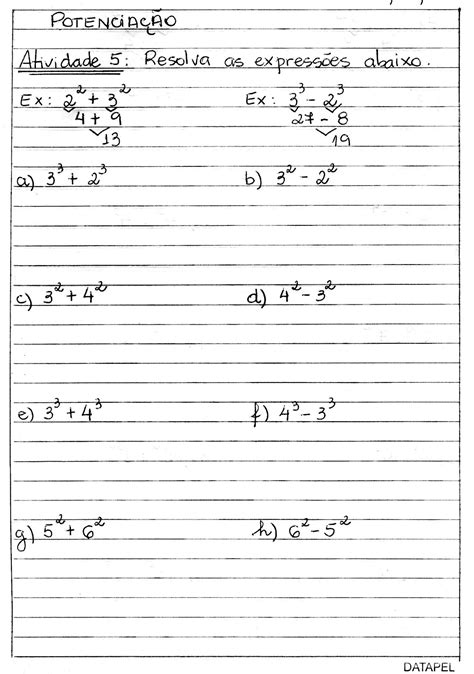 POTENCIAÇÃO
Atividade 5: Resolva as expressões abaixo.
Ex: 2² + 3² Ex: 3³ - 2³
4 + 9 27 - 8
13 19
a) 3³ + 2³ b) 3² - 2²
c) 3² + 4² d) 4² - 3²
e) 3³ + 4³ f) 4³ - 3³
g) 5² + 6² h) 6² - 5²
DATAPEL